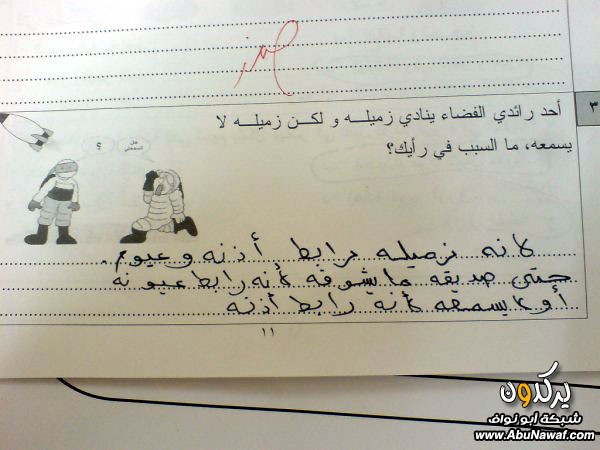 ٣
أحد رائدي الفضاء ينادي زميله و لكن زميله لا
يسمعه، ما السبب في رأيك؟
هل
تسمعني
؟
لانه زميله رابط أذنه وعيونه.
حتى صديقه ما يشوفه لأنه رابط عيونه
أو لا يسمعه لأنه رابط أذنه
١١
يركدون
شبكة أبو نواف
www.AbuNawaf.com